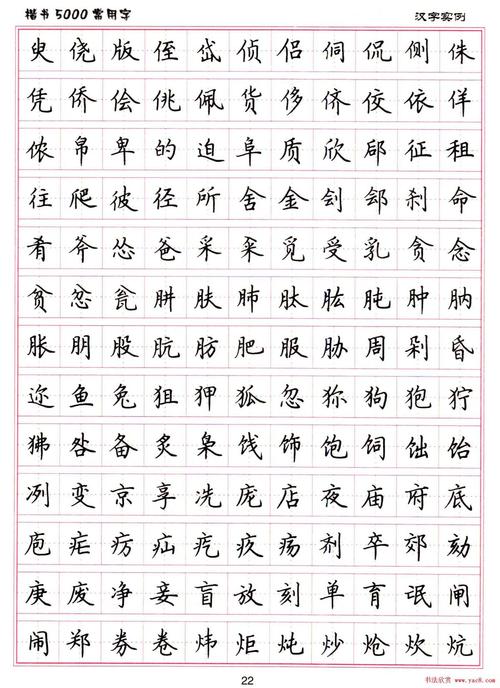 楷书5000常用字 汉字实例
臾侥版侄岱侦侣侗侃侧侏
凭侨侩佻佩货侈侪佼依佯
侬帛卑的迫阜质欣郈征租
往爬彼径所舍金刽郐刹命
肴斧怂爸采釆觅受乳贪念
贫忿瓮肼肤肺肽肱肫肿肭
胀朋股肮肪肥服胁周剁昏
迩鱼兔狙狎狐忽狝狗狍狞
狒咎备炙枭饯饰饱饲饳饴
冽变京享冼庞店夜庙府底
庖疟疠疝疙疚疡剂卒郊劾
庚废净妾盲放刻单育氓闸
闹郑券卷炜炬炖炒炝炊炕
22
书法欣赏
www.yac8.com